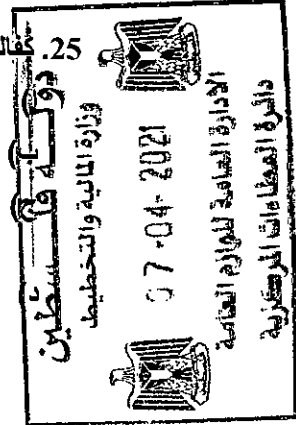 25. كفال
دولة فلسطين
وزارة المالية والتخطيط
07-04-2021
الادارة العامة للوازم العامة
دائرة العطاءات المركزية